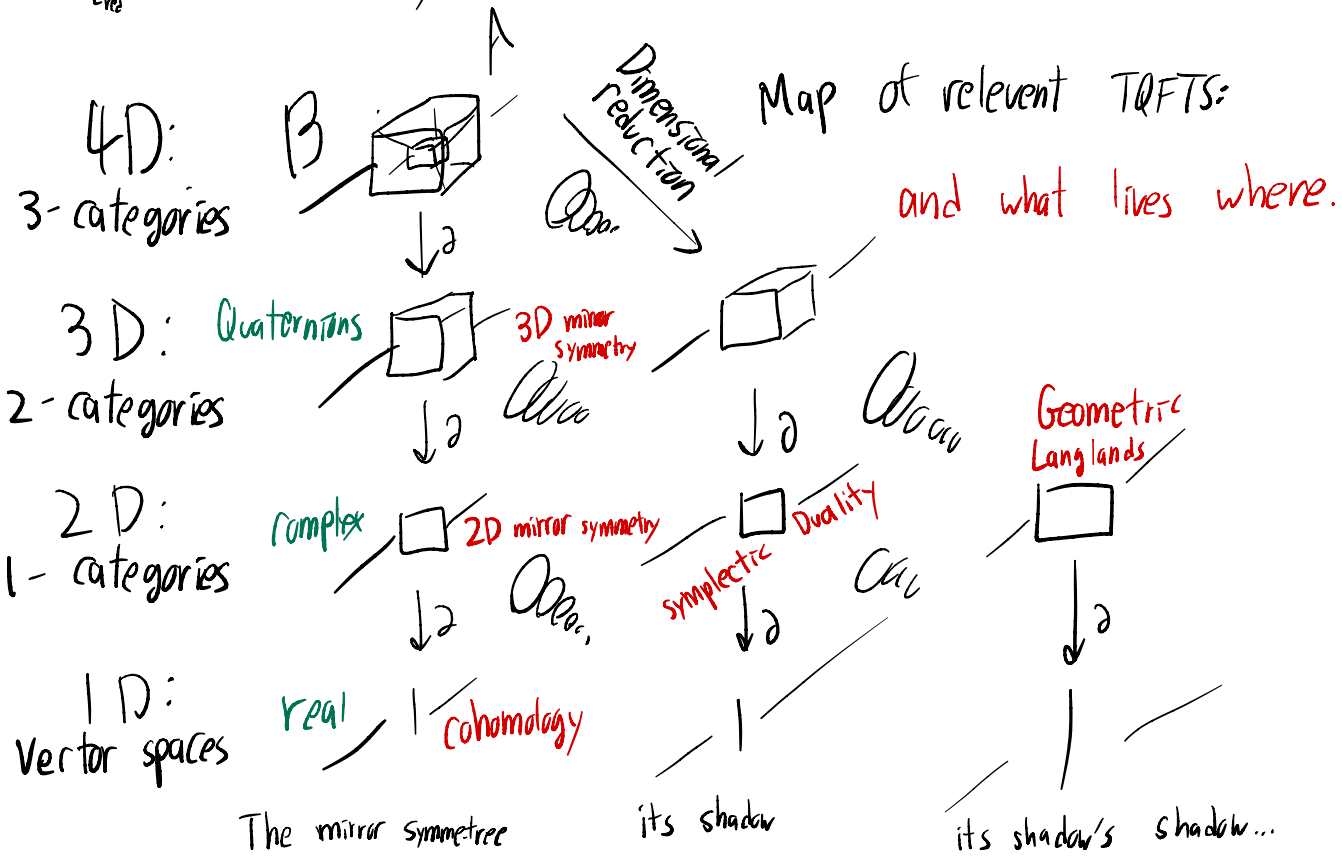 A
Map of relevent TQFTS:
and what lives where.
4D:
3-categories
B
Dimensional
reduction
∂
3D:
2-categories
Quaternions
3D mirror
symmetry
∂
∂
Geometric
Langlands
2D:
1- categories
complex
2D mirror symmetry
symplectic
Duality
∂
∂
∂
1D:
Vector spaces
real
cohomology
The mirror symmetree
its shadow
its shadow's shadow...